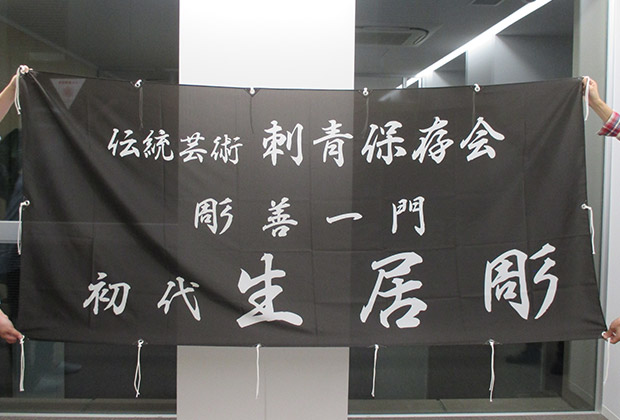 伝統芸術 刺青保存会
彫善一門
初代 生居彫